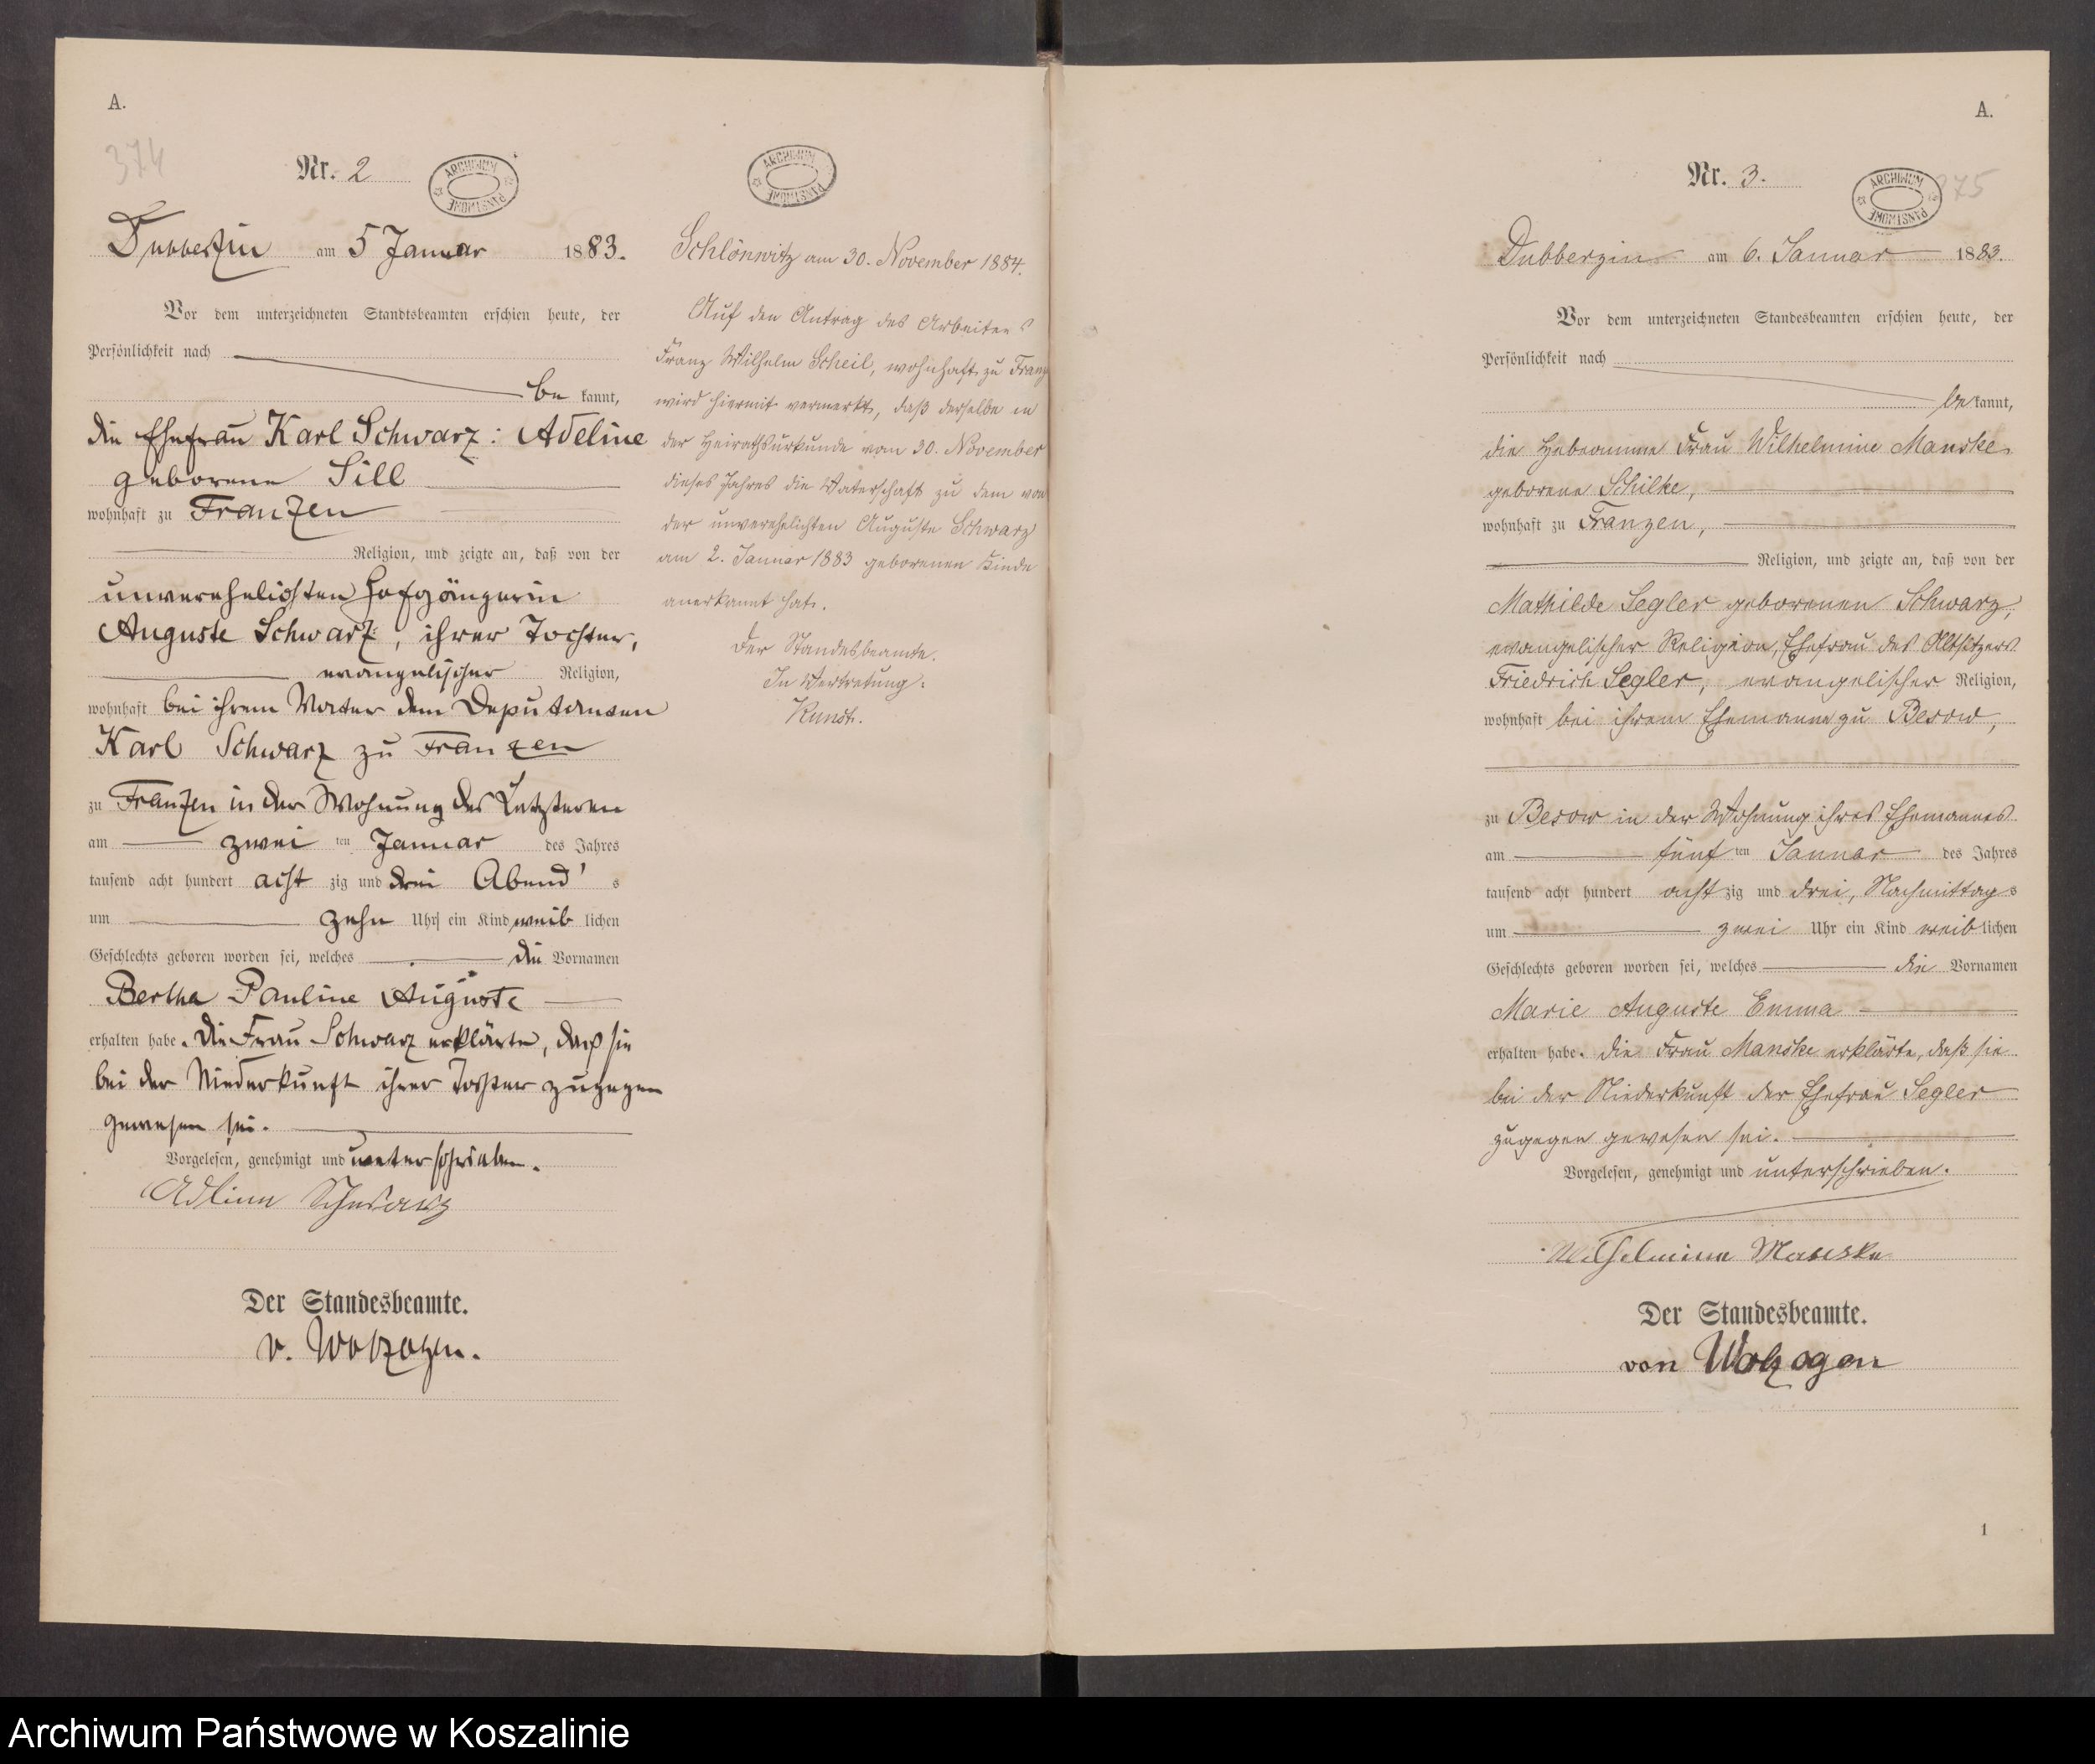 A.
374
Nr. 2
ARCHIWUM PAŃSTWOWE
Dubberzin am 5 Januar 1883.
Vor dem unterzeichneten Standtsbeamten erschien heute, der
Persönlichkeit nach
be kannt,
die Ehefrau Karl Schwarz: Adeline
geborene Sill
wohnhaft zu Franzen
Religion, und zeigte an, daß von der
unverehelichten Hofgängerin
Auguste Schwarz, ihrer Tochter,
evangelischer Religion,
wohnhaft bei ihrem Vater dem Deputanten
Karl Schwarz zu Franzen
zu Franzen in der Wohnung des Letzteren
am zwei ten Januar des Jahres
tausend acht hundert acht zig und drei Abend's
um zehn Uhr ein Kind weib lichen
Geschlechts geboren worden sei, welches die Vornamen
Bertha Pauline Auguste
erhalten habe. Die Frau Schwarz erklärte, daß sie
bei der Niederkunft ihrer Tochter zugegen
gewesen sei.
Vorgelesen, genehmigt und unterschrieben.
Adline Schwarz
Der Standesbeamte.
v. Wolzogen.
ARCHIWUM PAŃSTWOWE
Schlönwitz am 30. November 1884.
Auf den Antrag des Arbeiters
Franz Wilhelm Scheil, wohnhaft zu Franz
wird hiermit vermerkt, daß derselbe in
der Heirathsurkunde vom 30. November
dieses Jahres die Vaterschaft zu dem von
der unverehelichten Auguste Schwarz
am 2. Januar 1883 geborenen Kinde
anerkannt hat.
Der Standesbeamte.
In Vertretung:
Kundt.
A.
Nr. 3.
ARCHIWUM PAŃSTWOWE
375
Dubberzin am 6. Januar 1883.
Vor dem unterzeichneten Standesbeamten erschien heute, der
Persönlichkeit nach
be kannt,
die Hebeamme Frau Wilhelmine Manske
geborene Schilke,
wohnhaft zu Franzen,
Religion, und zeigte an, daß von der
Mathilde Segler geborenen Schwarz,
evangelischer Religion, Ehefrau des Altsitzers
Friedrich Segler, evangelischer Religion,
wohnhaft bei ihrem Ehemanne zu Besow,
zu Besow in der Wohnung ihres Ehemannes
am fünf ten Januar des Jahres
tausend acht hundert acht zig und drei, Nachmittags
um zwei Uhr ein Kind weib lichen
Geschlechts geboren worden sei, welches die Vornamen
Marie Auguste Emma
erhalten habe. Die Frau Manske erklärte, daß sie
bei der Niederkunft der Ehefrau Segler
zugegen gewesen sei.
Vorgelesen, genehmigt und unterschrieben.
Wilhelmine Manske
Der Standesbeamte.
von Wolzogen
1
Archiwum Państwowe w Koszalinie